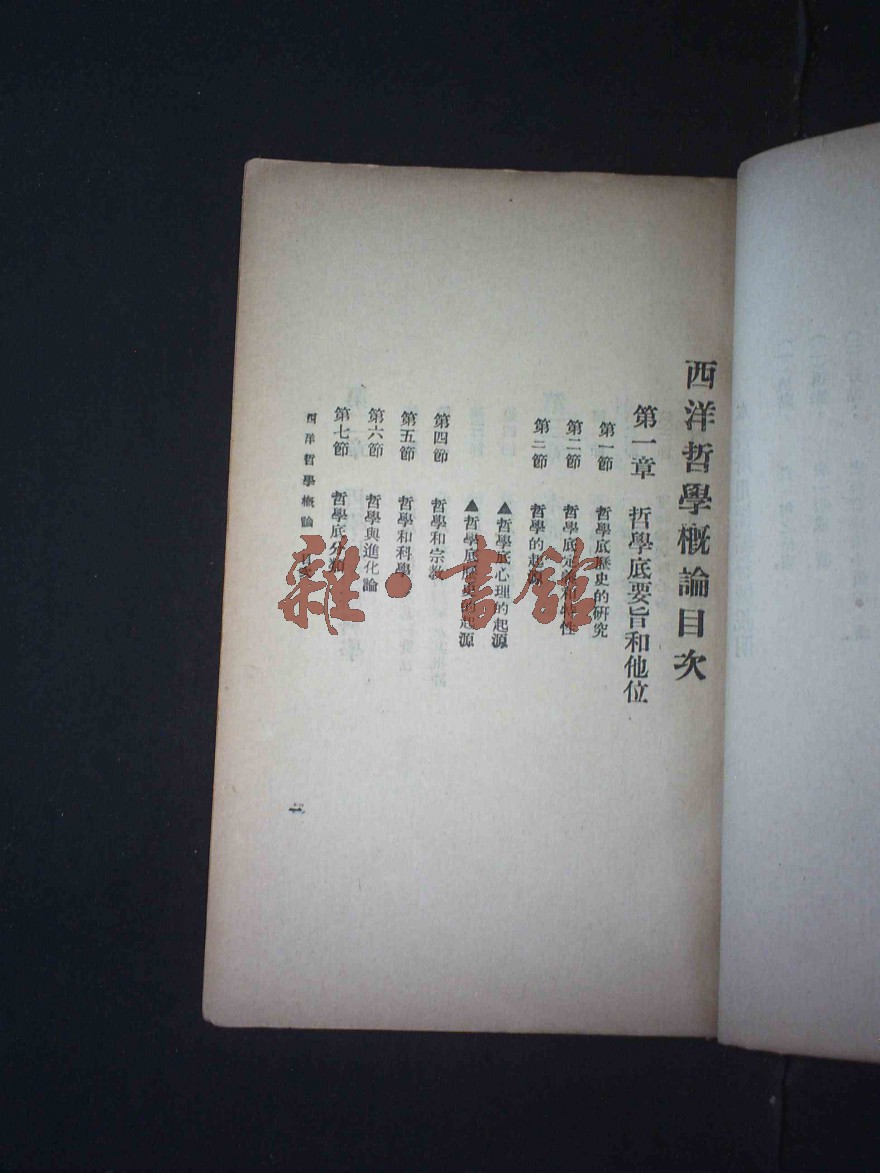 西洋哲學概論目次
第一章 哲學底要旨和他位
第一節 哲學底歷史的研究
第二節 哲學底定義和特性
第三節 哲學的起源
▲哲學底心理的起源
▲哲學底歷史的起源
第四節 哲學和宗教
第五節 哲學和科學
第六節 哲學與進化論
第七節 哲學底分類
西洋哲學概論 目次
一
雜·書館